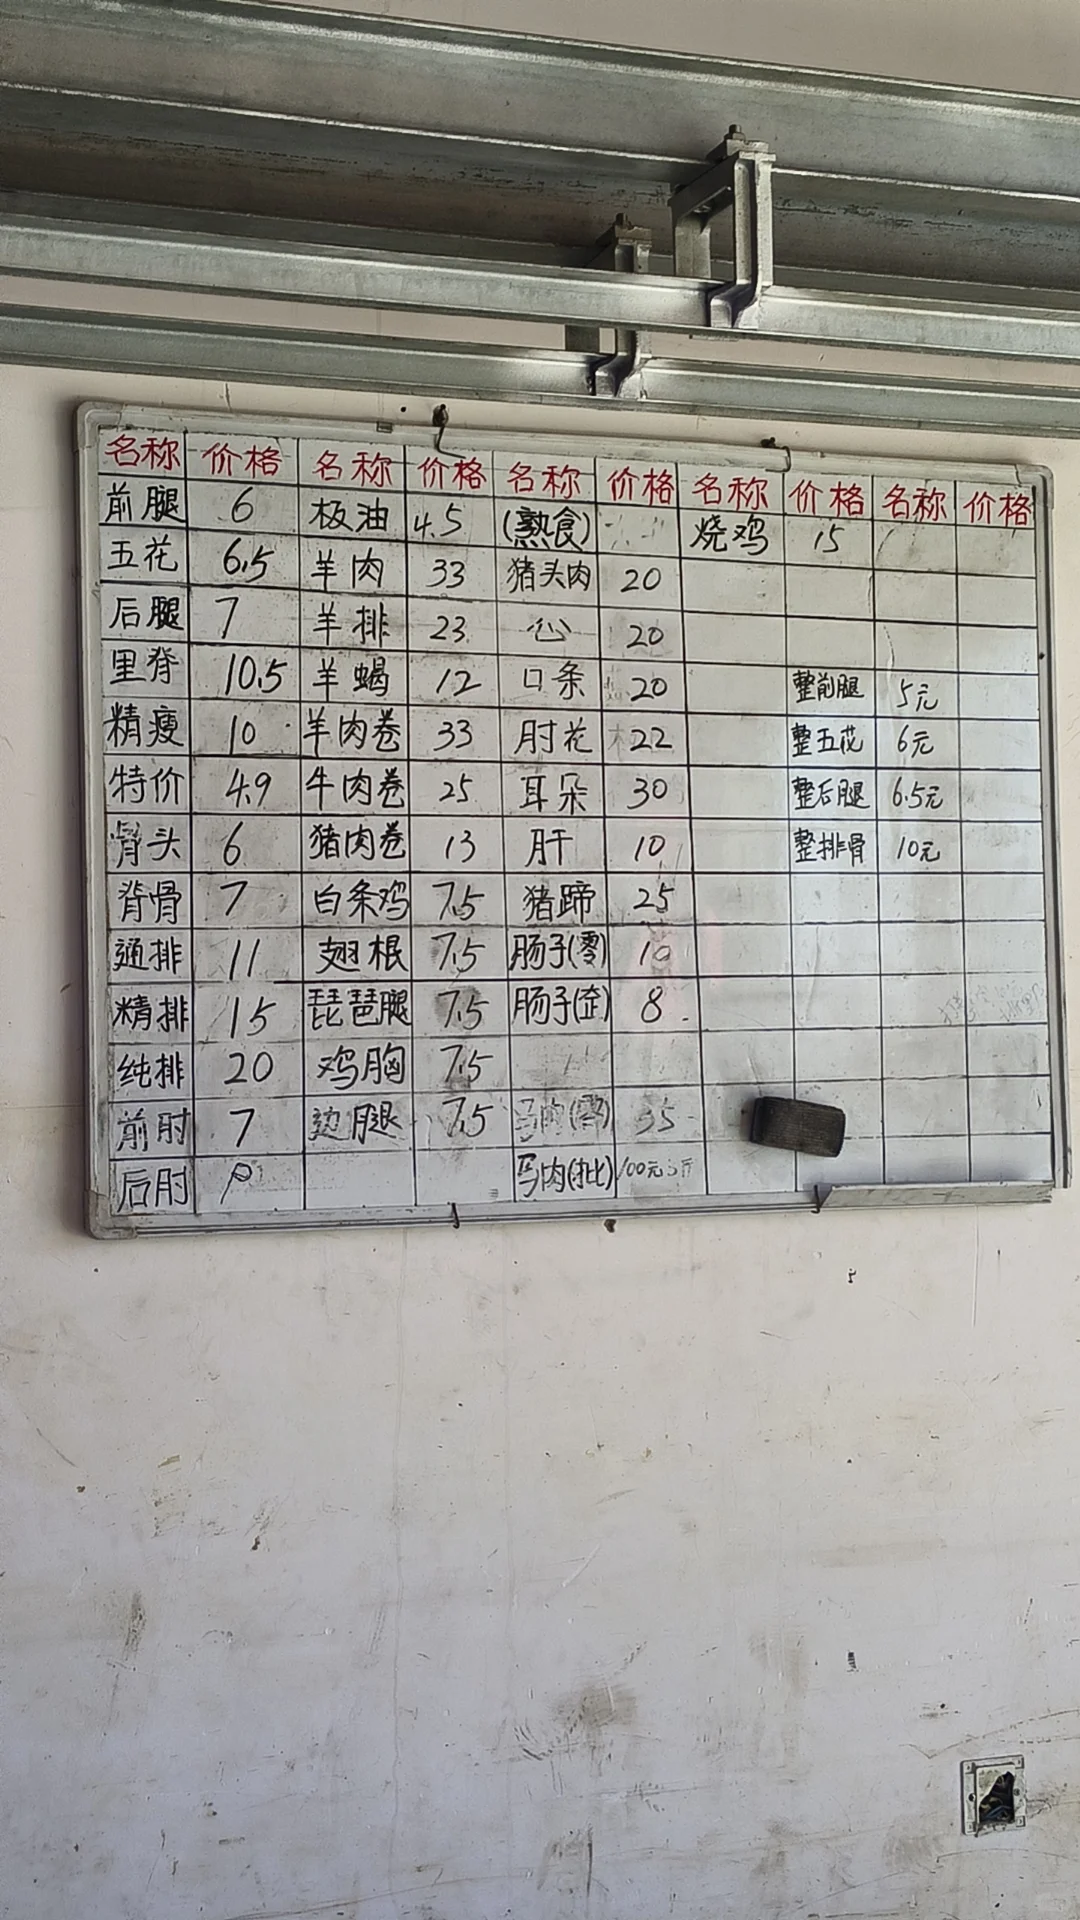 名称 价格 名称 价格 名称 价格 名称 价格 名称 价格
前腿 6 板油 4.5 (熟食) 烧鸡 15
五花 6.5 羊肉 33 猪头肉 20
后腿 7 羊排 23 心 20
里脊 10.5 羊蝎 12 口条 20 整前腿 5元
精瘦 10 羊肉卷 33 肘花 22 整五花 6元
特价 4.9 牛肉卷 25 耳朵 30 整后腿 6.5元
骨头 6 猪肉卷 13 肝 10 整排骨 10元
脊骨 7 白条鸡 7.5 猪蹄 25
通排 11 翅根 7.5 肠子(零) 10
精排 15 琵琶腿 7.5 肠子(整) 8
纯排 20 鸡胸 7.5
前肘 7 边腿 7.5 马肉(零) 35
后肘 马肉(批) 100元3斤